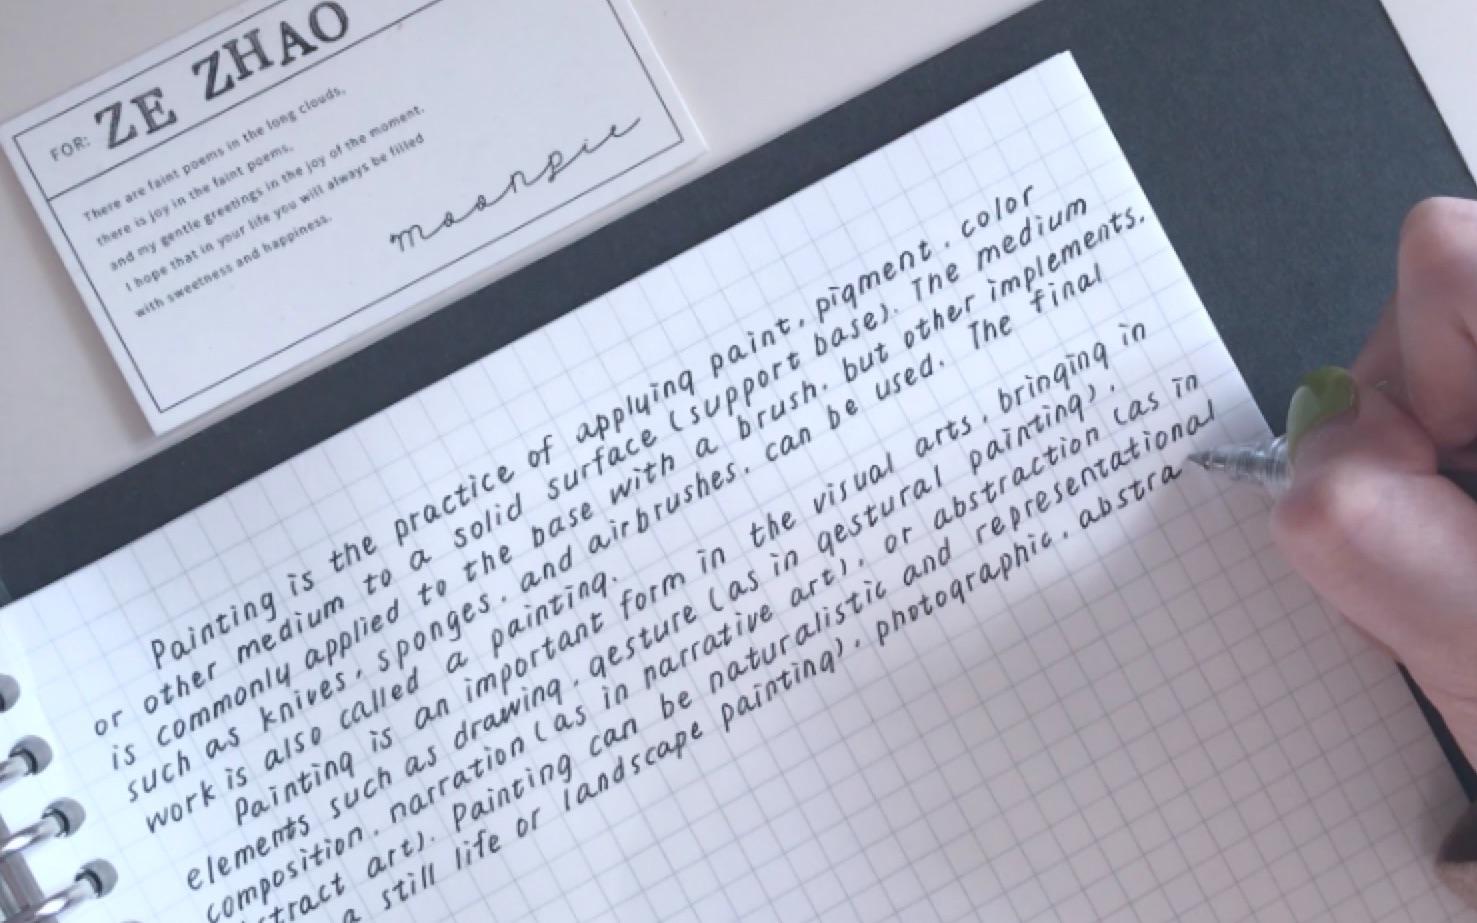 FOR: ZE ZHAO
There are faint poems in the long clouds,
there is joy in the faint poems,
and my gentle greetings in the joy of the moment.
I hope that in your life you will always be filled
with sweetness and happiness.
moonpie
Painting is the practice of applying paint, pigment, color
or other medium to a solid surface (support base). The medium
is commonly applied to the base with a brush, but other implements.
such as knives, sponges, and airbrushes, can be used. The final
work is also called a painting.
Painting is an important form in the visual arts, bringing in
elements such as drawing, gesture (as in gestural painting),
composition, narration (as in narrative art), or abstraction (as in
stract art). Painting can be naturalistic and representational
a still life or landscape painting), photographic, abstra